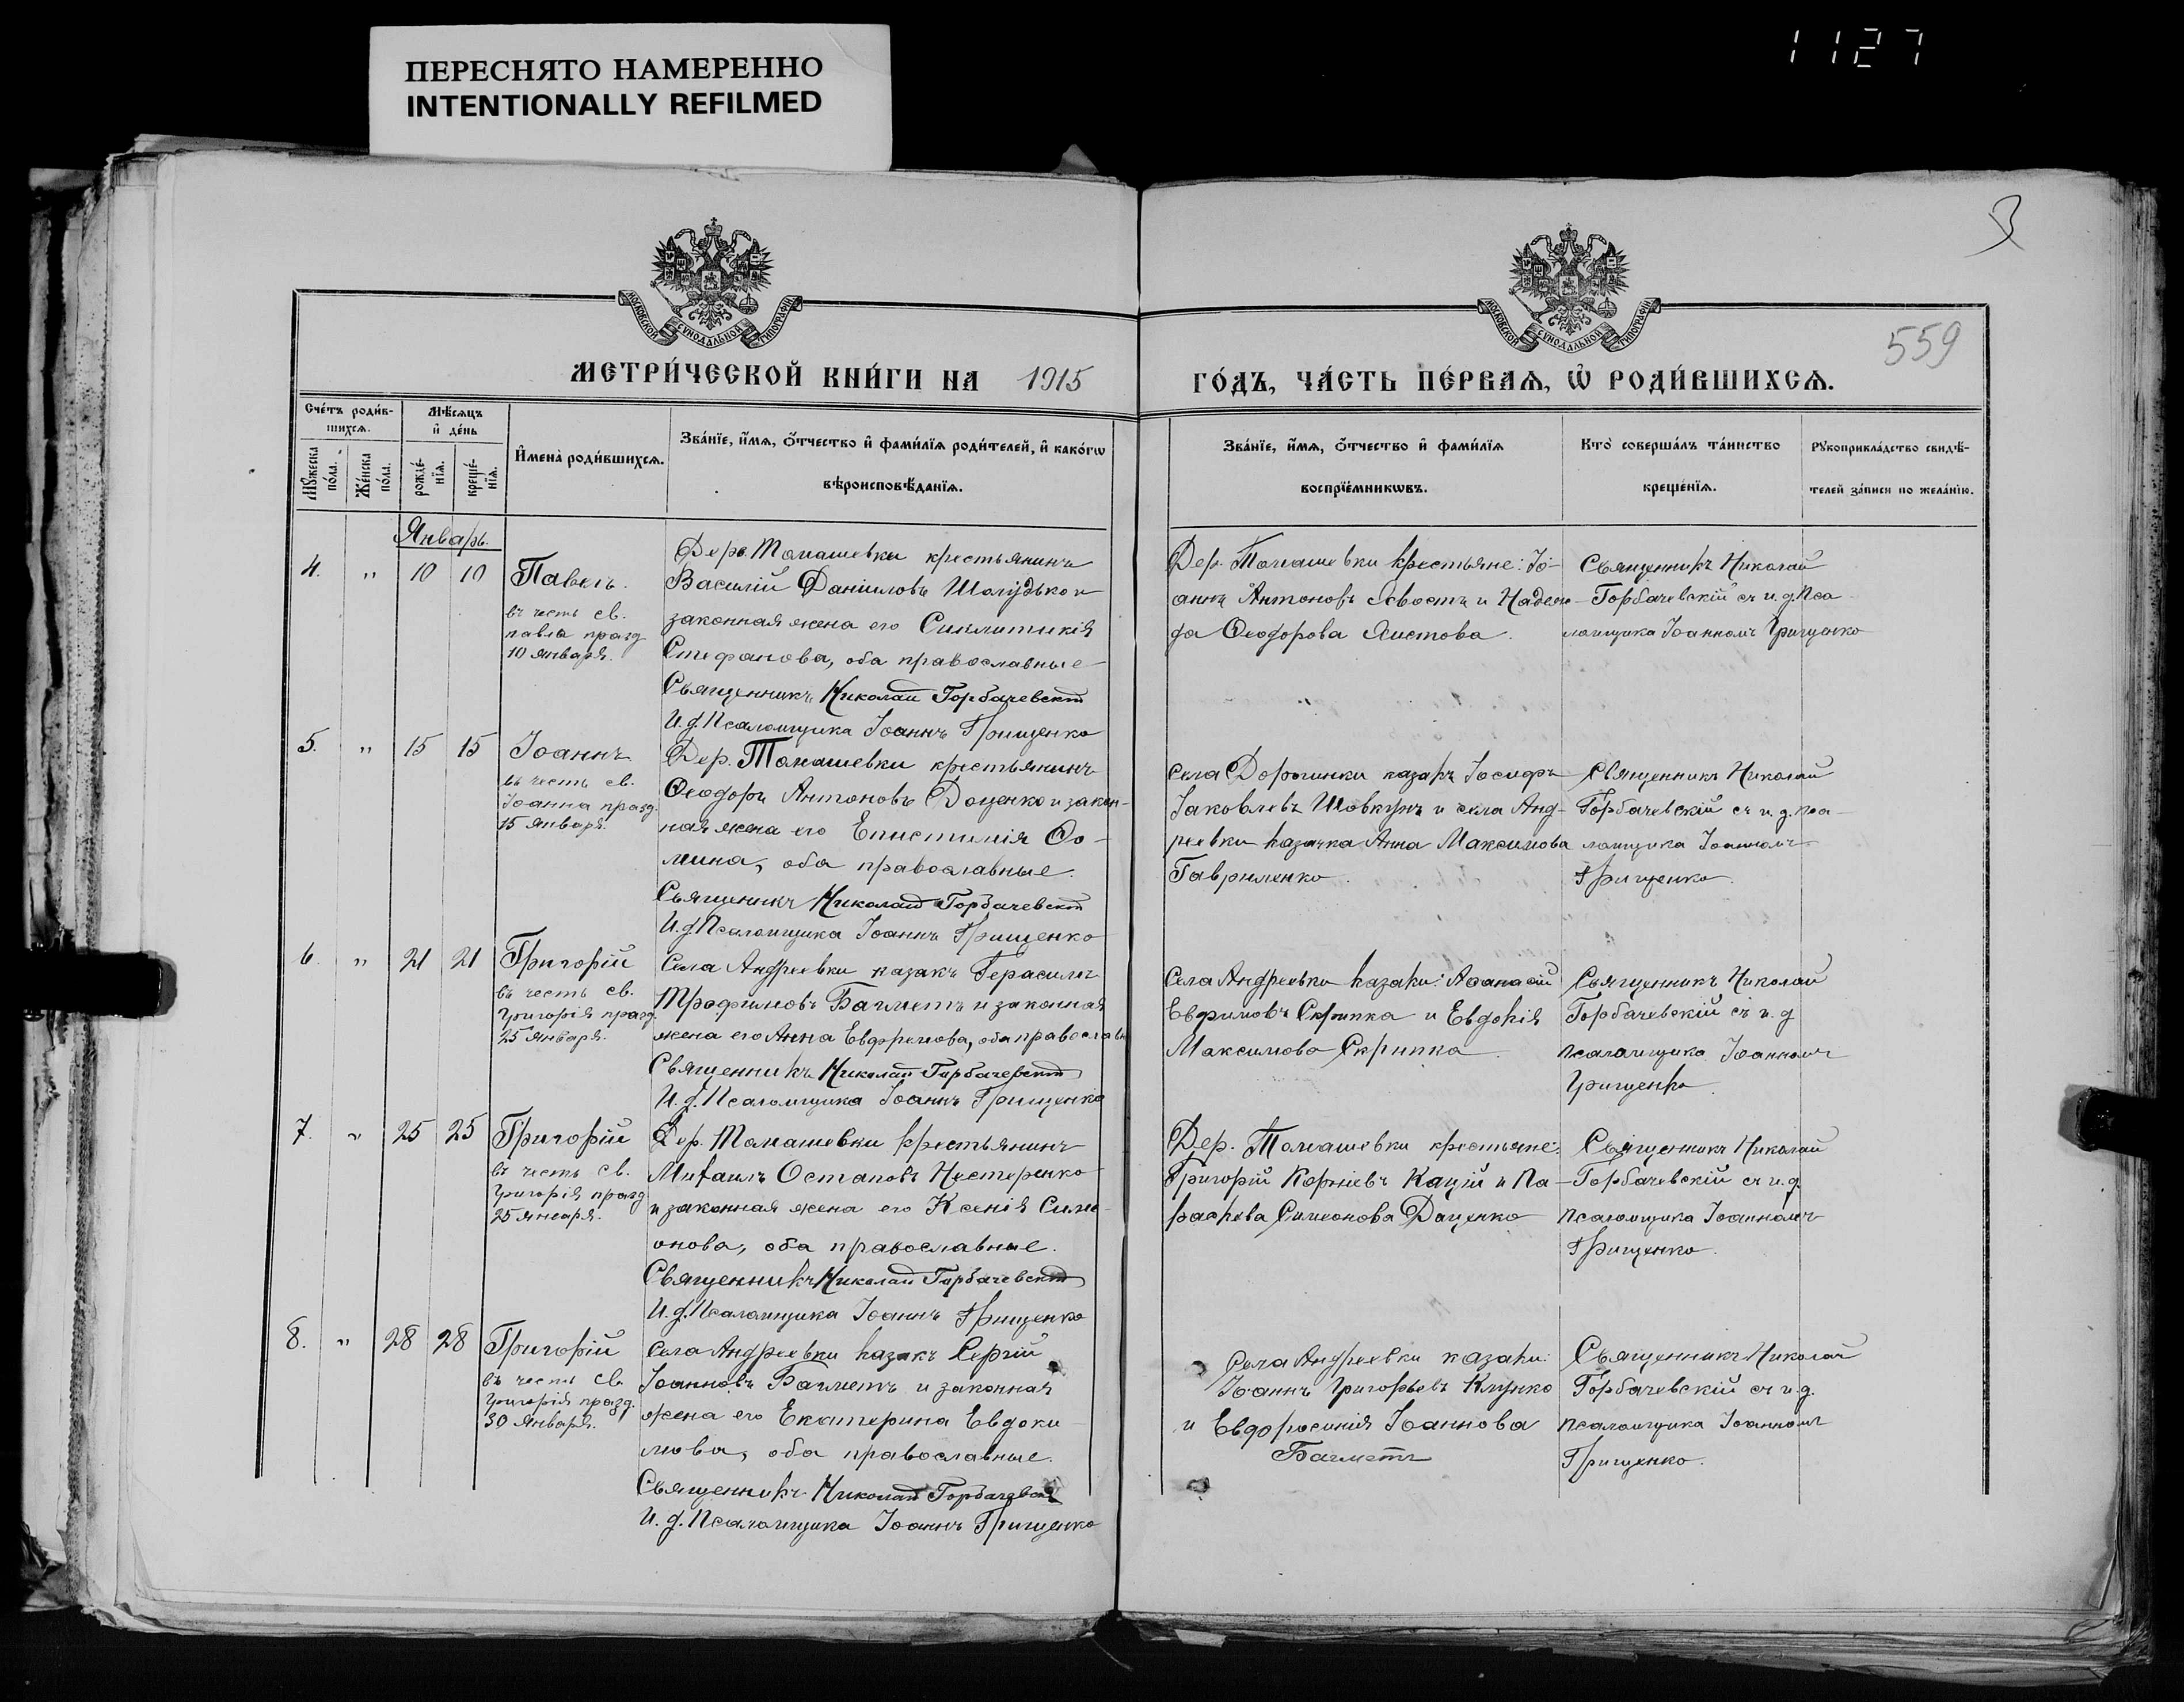 ПЕРЕСНЯТО НАМЕРЕННО
INTENTIONALLY REFILMED
1127
3
559
МОСКОВСКОЙ СУНОДАЛЬНОЙ ТИПОГРАФІИ
МОСКОВСКОЙ СУНОДАЛЬНОЙ ТИПОГРАФІИ
МЕТРИ́ЧЕСКОЙ КНИ́ГИ НА 1915
ГО́ДЪ, ЧА́СТЬ ПЕ́РВАѦ, Ѡ҆ РОДИ́ВШИХСѦ.
Сче́тъ роди́в-
шихсѧ.
Мꙋ́жеска по́ла.
Же́нска по́ла.
Мѣ́сѧцъ
и҆ де́нь
рожде́-
нїѧ.
креще́-
нїѧ.
И҆мена̀ роди́вшихсѧ.
Зва́нїе, и҆́мѧ, ѻ҆́тчество и҆ фами́лїѧ роди́телей, и҆ како́гѡ
вѣроисповѣ́данїѧ.
Зва́нїе, и҆́мѧ, ѻ҆́тчество и҆ фами́лїѧ
воспрїе́мникѡвъ.
Кто̀ соверша́лъ та́инство
креще́нїѧ.
Рꙋкоприкла́дство свидѣ́-
телей за́писи по жела́нїю.
Январь.
4. " 10 10
Павелъ.
въ честь св.
павла празд
10 января.
Дер. Томашевки крестьянинъ
Василій Даніиловъ Шолудько и
законная жена его Синклитикія
Стефанова, оба православные
Священникъ Николай Горбачевскій
И.д. Псаломщика Іоаннъ Грищенко
Дер. Томашевки крестьяне: Іо-
аннъ Антоновъ Хвостъ и Надеж-
да Ѳеодорова Хистова.
Священникъ Николай
Горбачевскій съ и.д. Пса-
ломщика Іоанномъ Грищенко
5. " 15 15
Іоаннъ
въ честь св.
Іоанна празд.
15 Января.
Дер. Томашевки крестьянинъ
Ѳеодоръ Антоновъ Доценко и закон-
ная жена его Епистимія Ѳо-
мина, оба православные.
Священникъ Николай Горбачевскій
И.д. Псаломщика Іоаннъ Грищенко
Села Дорогинки казакъ Іосифъ
Іаковлевъ Шовкунъ и села Анд-
реевки казачка Анна Максимова
Гавриленко.
Священникъ Николай
Горбачевскій съ и.д. пса-
ломщика Іоанномъ
Грищенко.
6. " 21 21
Григорій
въ честь св.
Григорія празд.
25 Января.
Села Андреевки казакъ Герасимъ
Трофимовъ Багметъ и законная
жена его Анна Евфремова, оба православн
Священникъ Николай Горбачевскій
И.д. Псаломщика Іоаннъ Грищенко
Села Андреевки казаки: Аѳанасій
Евфимовъ Скрипка и Евдокія
Максимова Скрипка.
Священникъ Николай
Горбачевскій съ и.д
псаломщика Іоанномъ
Грищенко
7. " 25 25
Григорій
въ честь св.
Григорія празд
25 января.
Дер. Томашевки крестьянинъ
Михаилъ Остаповъ Нестеренко
и законная жена его Ксенія Симе-
онова, оба православные.
Священникъ Николай Горбачевскій
И.д. Псаломщика Іоаннъ Грищенко
Дер. Томашевки крестьяне:
Григорій Корніевъ Кацій и Па-
раскева Симеонова Даценко
Священникъ Николай
Горбачевскій съ и.д.
псаломщика Іоанномъ
Грищенко.
8. " 28 28
Григорій
въ честь св.
Григорія празд.
30 Января.
Села Андреевки казакъ Сергій
Іоанновъ Багметъ и законная
жена его Екатерина Евдоки-
мова, оба православные.
Священникъ Николай Горбачевскій
И.д. Псаломщика Іоаннъ Грищенко
Села Андреевки казаки:
Іоаннъ Григорьевъ Клунко
и Евфросинія Іоаннова
Багметъ
Священникъ Николай
Горбачевскій съ и.д.
псаломщика Іоанномъ
Грищенко.